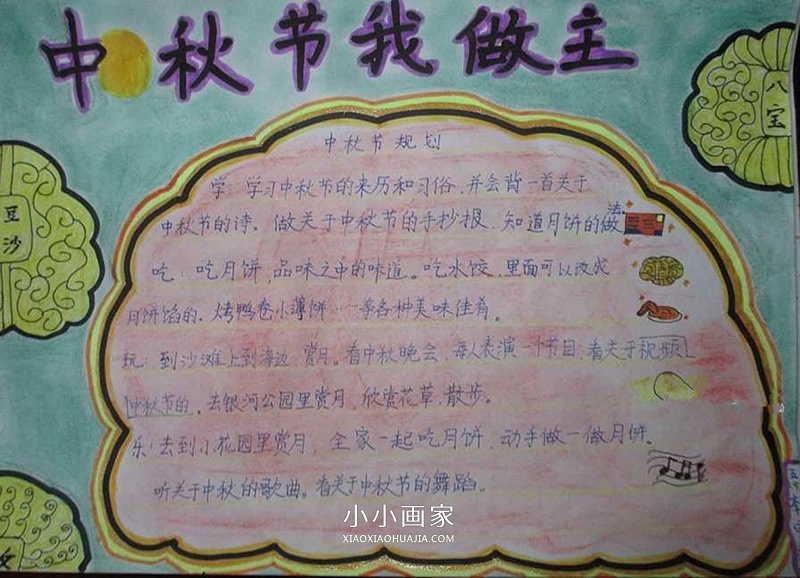 中秋节我做主
八宝
豆沙
中秋节规划
学：学习中秋节的来历和习俗，并会背一首关于
中秋节的诗、做关于中秋节的手抄报、知道月饼的做法。
吃：吃月饼，品味之中的味道。吃水饺，里面可以改成
月饼馅的。烤鸭卷小薄饼……等各种美味佳肴。
玩：到沙滩上到海边，赏月。看中秋晚会，每人表演一个节目，看关于视频
中秋节的。去银河公园里赏月，欣赏花草，散步。
乐：去到小花园里赏月，全家一起吃月饼，动手做一做月饼、
听关于中秋的歌曲。看关于中秋节的舞蹈。
小小画家
XIAOXIAOHUAJIA.COM